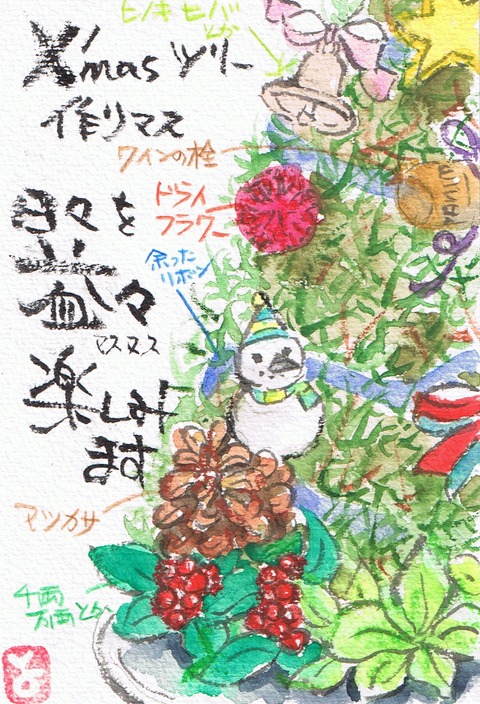 ヒノキ ヒバ
とか
X'mas ツリー
作リマス
ワインの栓
ドライ
フラワー
日々を
余った
リボン
益々
マスマス
楽しみ
ます
マツカサ
千両
万両とか